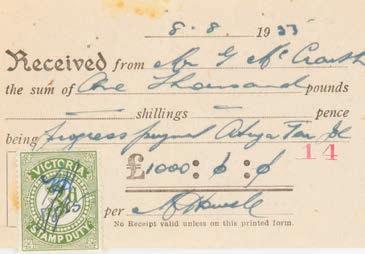 8.8.1933
Received from Mr G McCrath
the sum of One Thousand pounds
shillings pence
being Progress payment
14
£1000 : 0 : 0
VICTORIA
STAMP DUTY
per
No Receipt valid unless on this printed form.